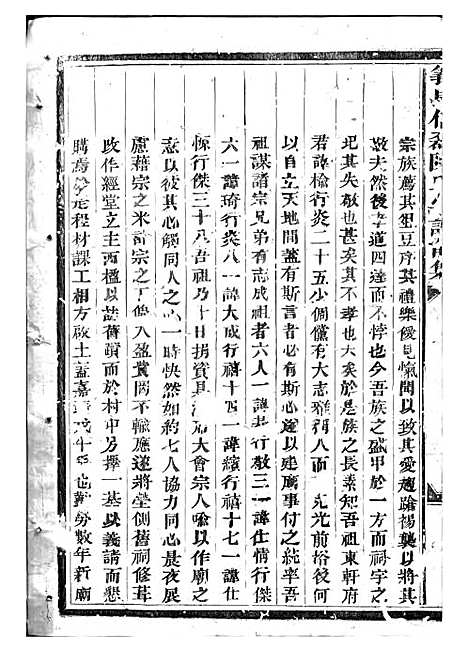 宗族薦其俎豆序其禮樂優見愾聞以致其愛趨蹌揚襲以將其
敬夫然後孝道四達而不悖也今吾族之盛甲於一方而祠宇之
圮其失敬也甚矣其不孝也大矣故族之長素知吾祖東軒府
君諱棆行炎二十五少倜儻有大志雖得八面光光前裕後何
以自立天地間哉有斯言者必有斯心遂以建廟事付之統率吾
祖謀諸宗兄弟有志成祖者六人一諱行敬三一諱仕情行傑
六一諱琦行炎八一諱大成行禧十四一諱繽行禧十七一諱仕
行傑三十八吾祖乃十日捐資具酒大會宗人喻以作廟之
志以彼其心觸同人之心一時快然如約七人協力同心晨夜展
慮藉宗之米計宗之丁倂入盈冀罔不輸應遂將塋側舊祠修葺
改作經堂立主西楹以誌舊蹟而於村中另擇一基以義請而懇
購焉於是程材課工相方啟土蓋嘉年也勤勞數年新廟